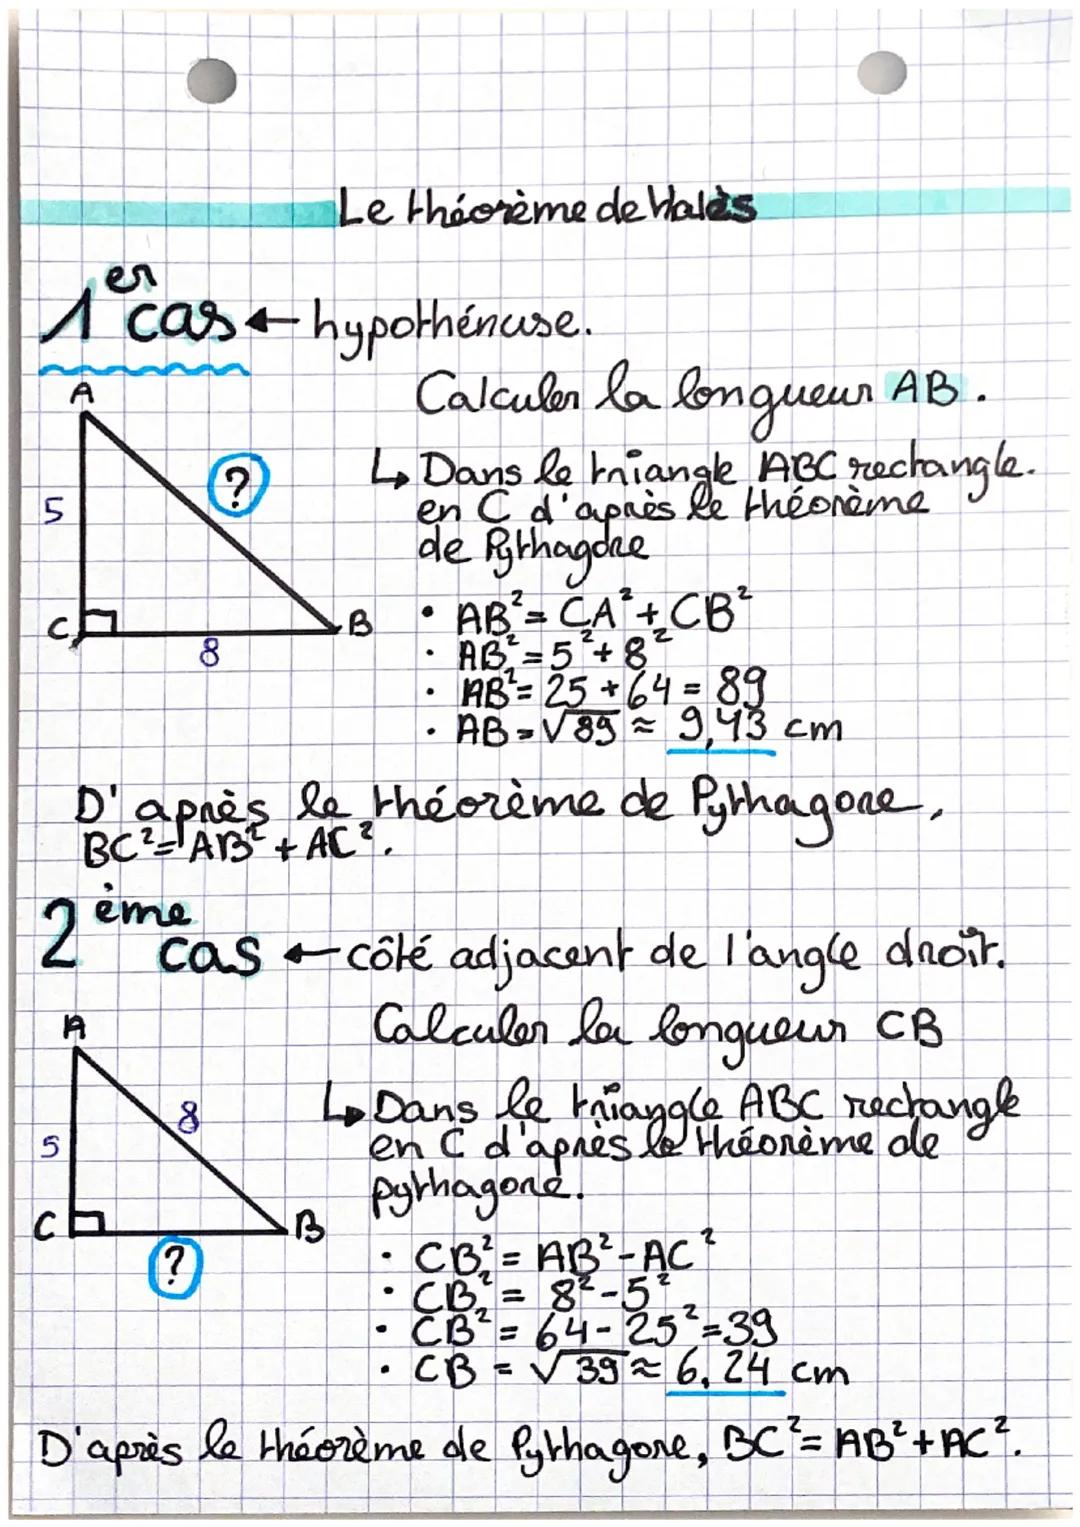 Le théorème de thalès
1er cas ← hypothénuse.
Calculer la longueur AB.
A
?
5
C
B
8
↳ Dans le triangle ABC rectangle.
en C d'après le théorème
de Pythagore
• AB² = CA² + CB²
• AB² = 5² + 8²
• AB² = 25 + 64 = 89
• AB = √89 ≈ 9,43 cm
D'après le théorème de Pythagore,
BC² = AB² + AC².
2ème cas ← côté adjacent de l'angle droit.
Calculer la longueur CB
A
8
5
C
B
?
↳ Dans le triangle ABC rectangle
en C d'après le théorème de
pythagore.
• CB² = AB² - AC²
• CB² = 8² - 5²
• CB² = 64 - 25² = 39
• CB = √39 ≈ 6,24 cm
D'après le théorème de Pythagore, BC² = AB² + AC².